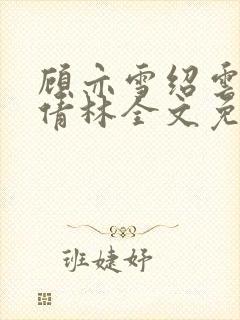 顾亦雪绍雲
倩林全文免
班婕妤